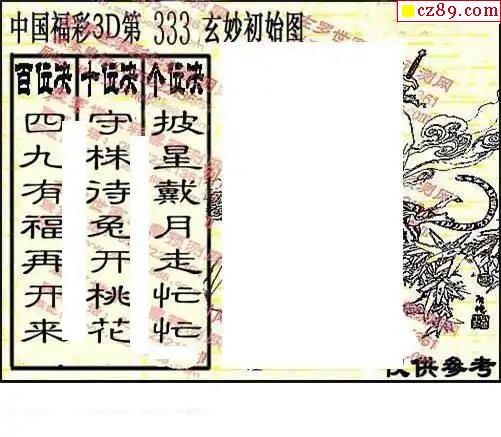 cz89.com
中国福彩3D第 333 玄妙初始图
百位决 十位决 个位决
四九有福再开来
守株待兔开桃花
披星戴月走忙忙
仅供参考